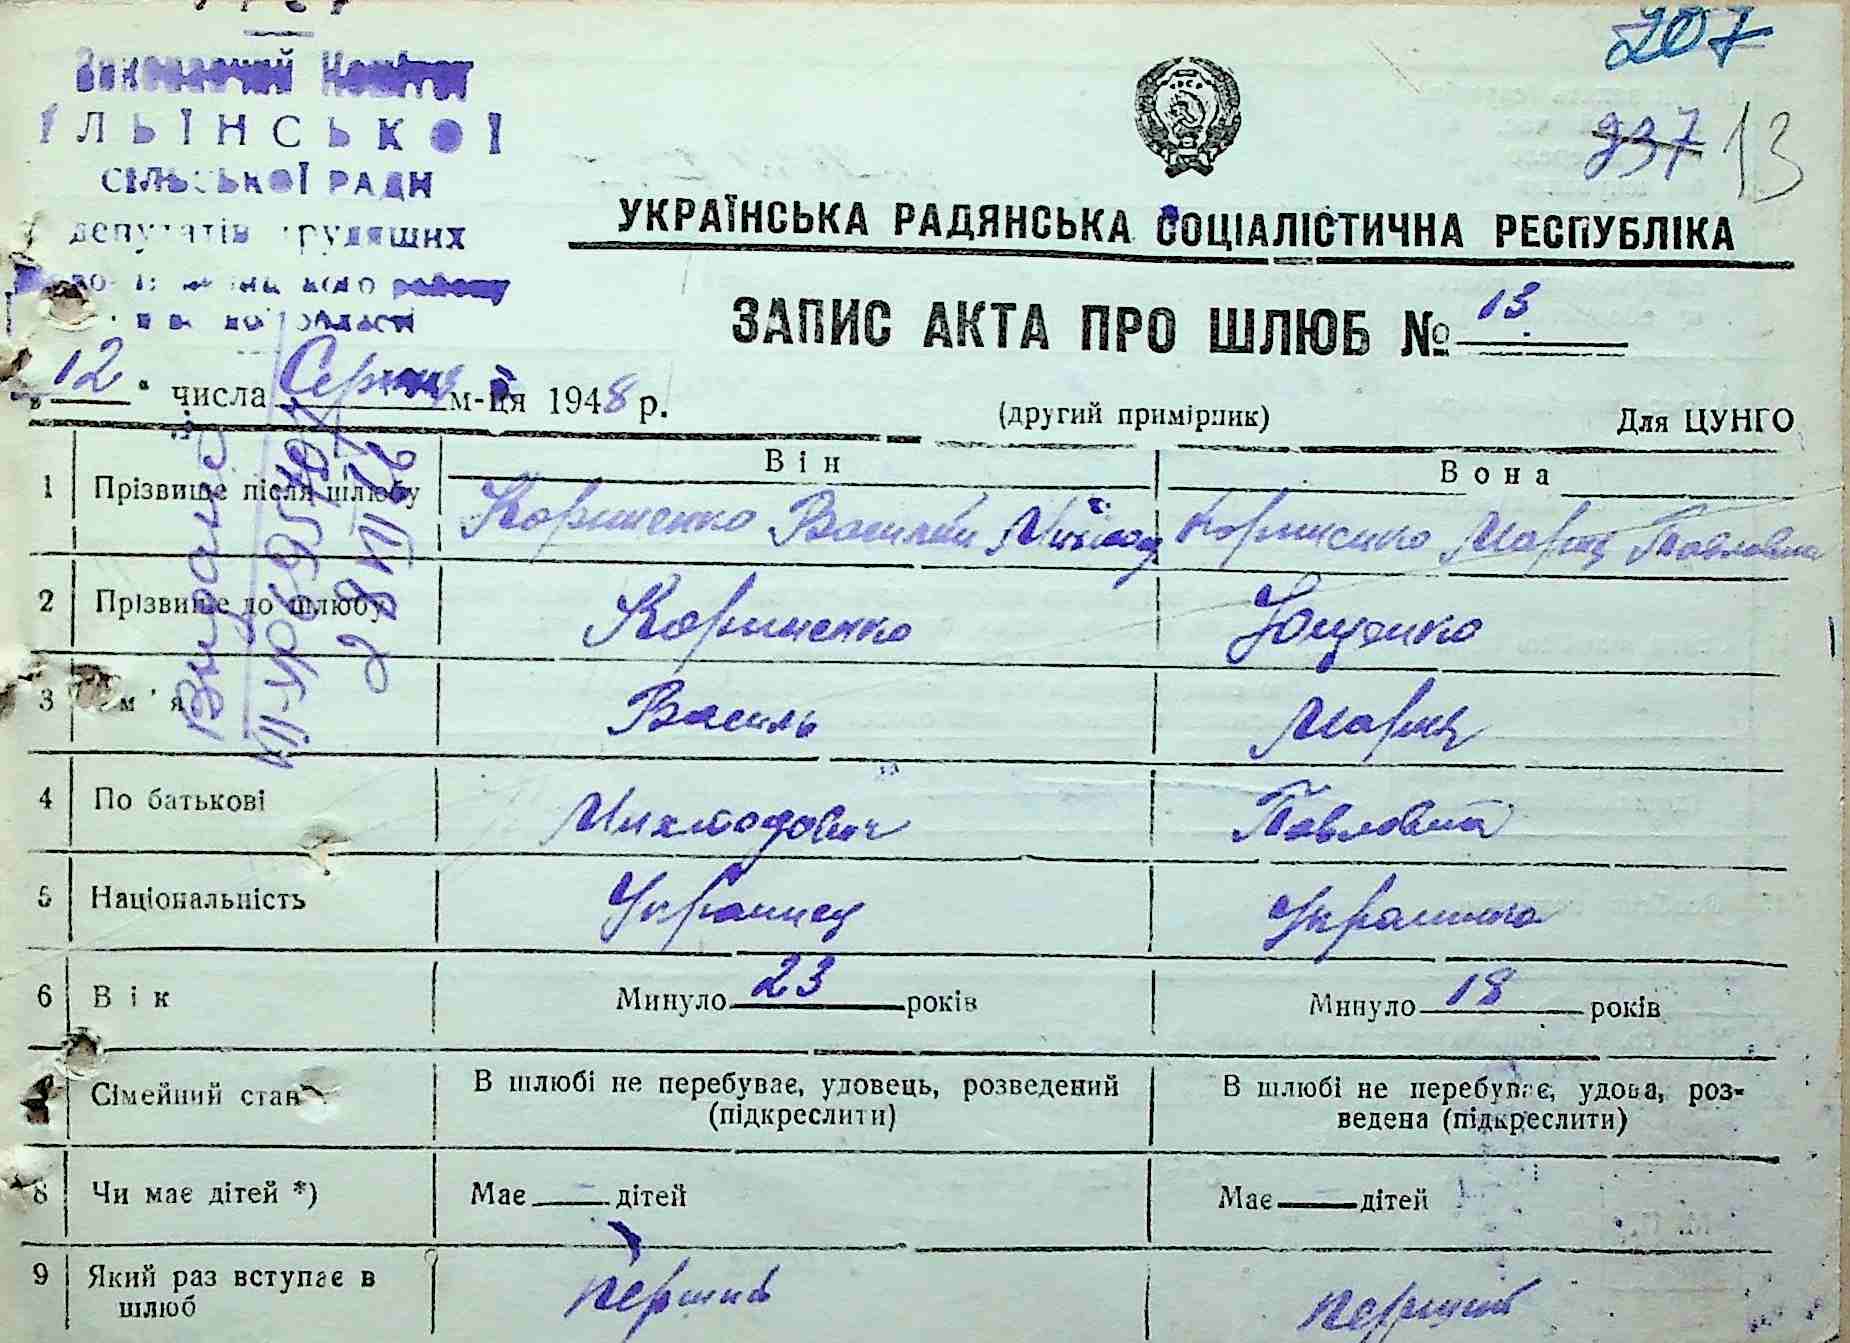 207
Виконавчий Комітет
237 13
ІЛЬЇНСЬКОЇ
СІЛЬСЬКОЇ РАДИ
депутатів трудящих
району
області
УКРАЇНСЬКА РАДЯНСЬКА СОЦІАЛІСТИЧНА РЕСПУБЛІКА
ЗАПИС АКТА ПРО ШЛЮБ № 13
„12“ числа Серпня м-ця 1948 р.
(другий примірник) Для ЦУНГО
Він Вона
1 Прізвище після шлюбу Корниенко Василий Корниенко Мария Павловна
2 Прізвище до шлюбу Корниенко Ющенко
3 Ім'я Василь Мария
4 По батькові Павловна
5 Національність Украинец Украинка
6 Вік Минуло 23 років Минуло 18 років
7 Сімейний стан В шлюбі не перебуває, удовець, розведений (підкреслити) В шлюбі не перебуває, удова, роз-
ведена (підкреслити)
8 Чи має дітей *) Має — дітей Має — дітей
9 Який раз вступає в
шлюб Перший Перший